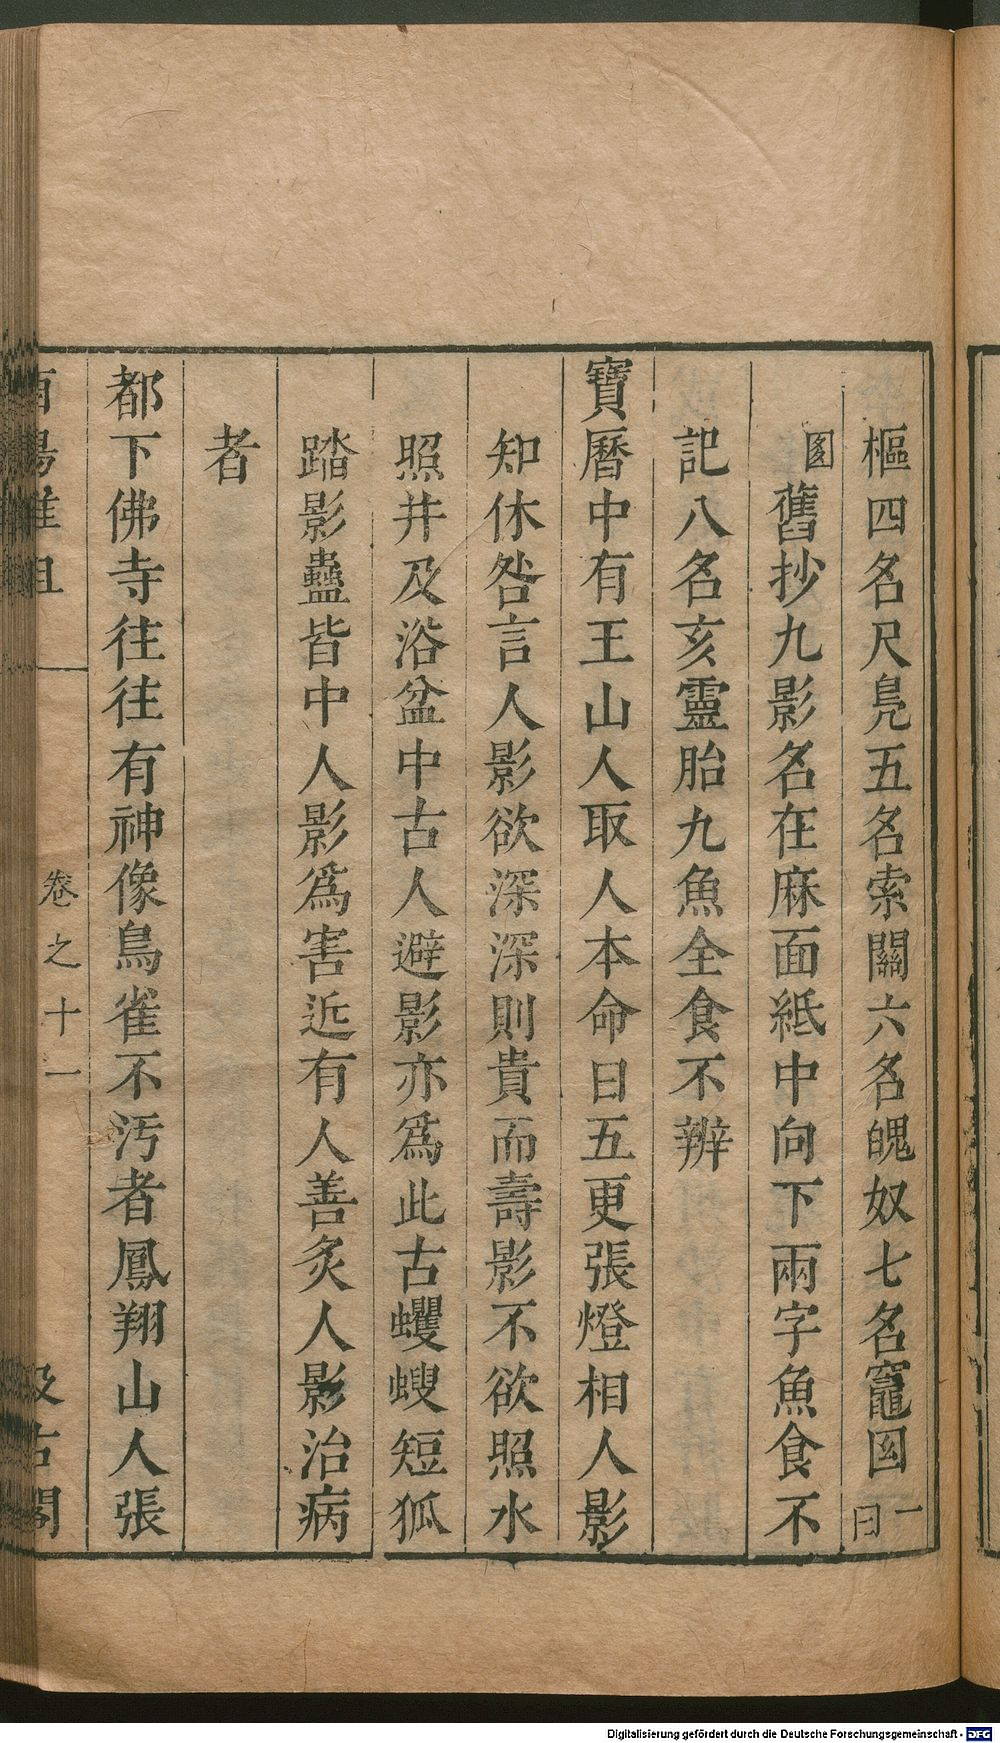 樞四名尺鳧五名索關六名魄奴七名竈囦一曰
圂舊抄九影名在麻面紙中向下兩字魚食不
記八名亥靈胎九魚全食不辨
寶曆中有王山人取人本命日五更張燈相人影
知休咎言人影欲深深則貴而壽影不欲照水
照井及浴盆中古人避影亦爲此古蠼螋短狐
踏影蠱皆中人影爲害近有人善炙人影治病
者
都下佛寺往往有神像鳥雀不汚者鳳翔山人張
酉陽雜俎 卷之十一 汲古閣
Digitalisierung gefördert durch die Deutsche Forschungsgemeinschaft - DFG